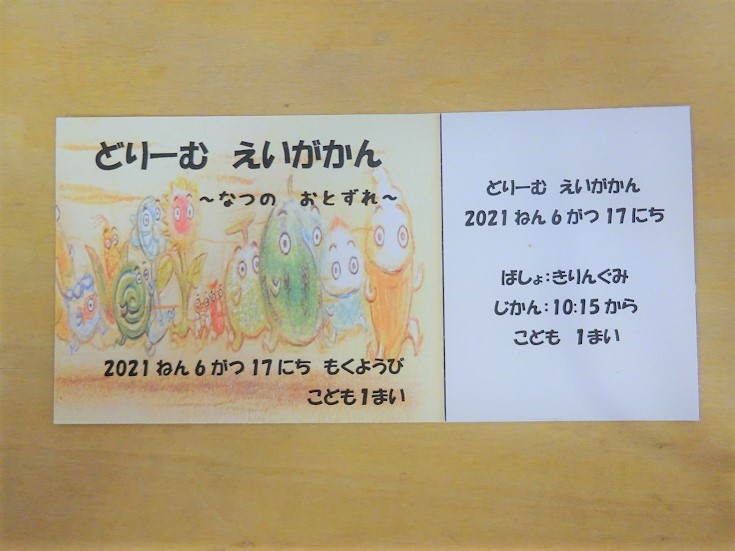 どりーむ　えいがかん
～なつの　おとずれ～
2021ねん6がつ17にち　もくようび
こども1まい
どりーむ　えいがかん
2021ねん6がつ17にち
ばしょ：きりんぐみ
じかん：10:15から
こども　1まい